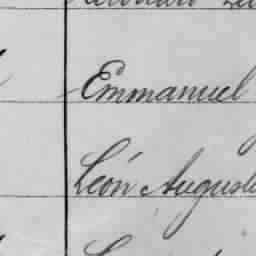 Emmanuel
Léon August